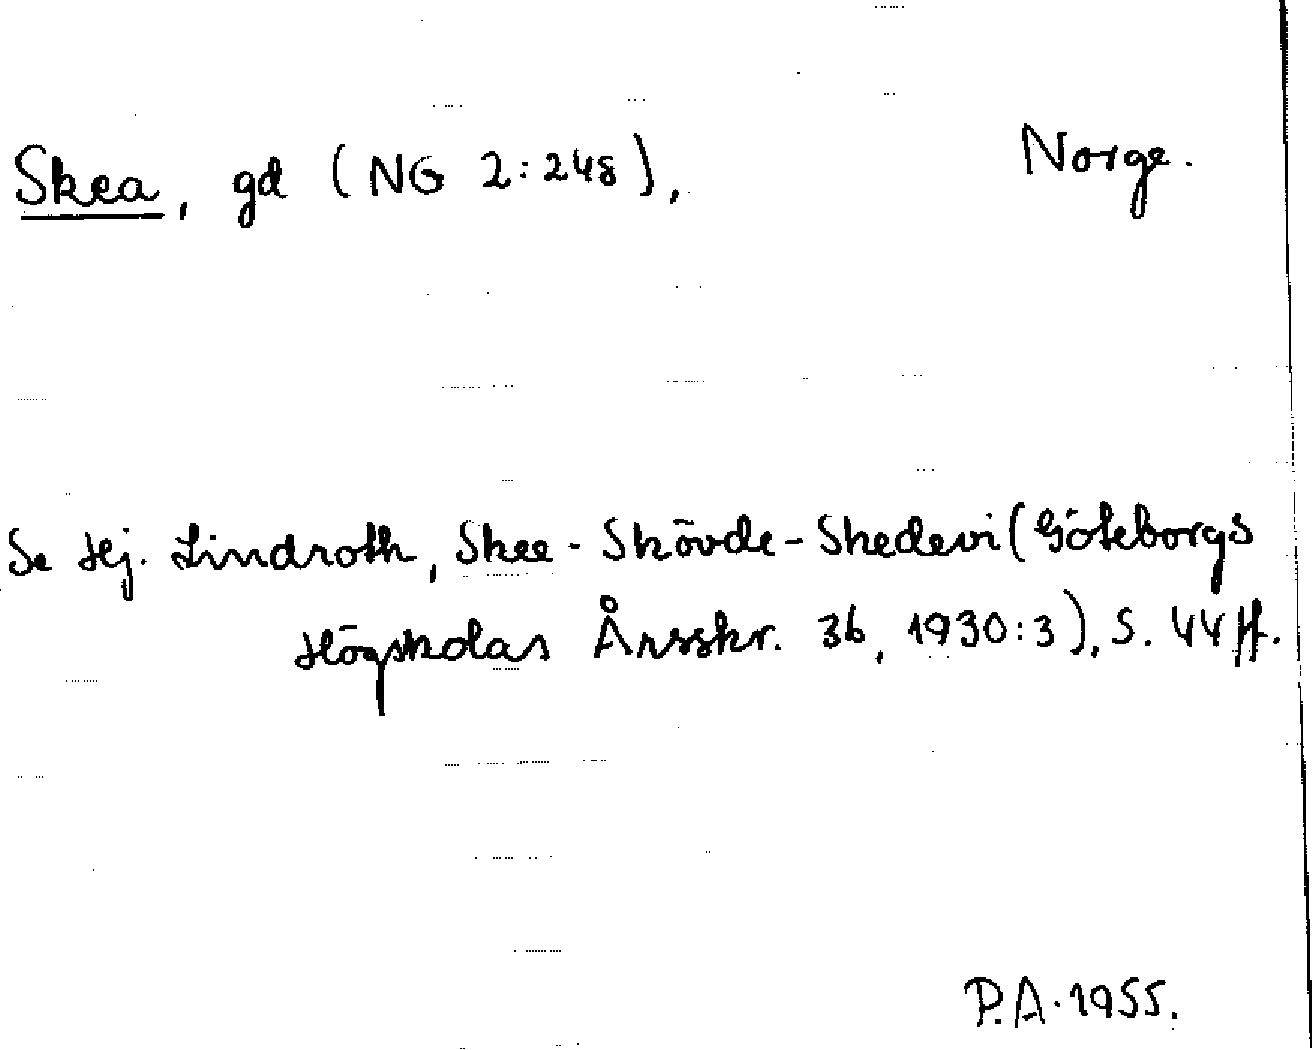 Skea, gd (NG 2:248), Norge.
Se Hj. Lindroth, Skee - Skövde - Skedevi (Göteborgs
Högskolas Årsskr. 36, 1930:3), S. 44 ff.
P.A. 1955.